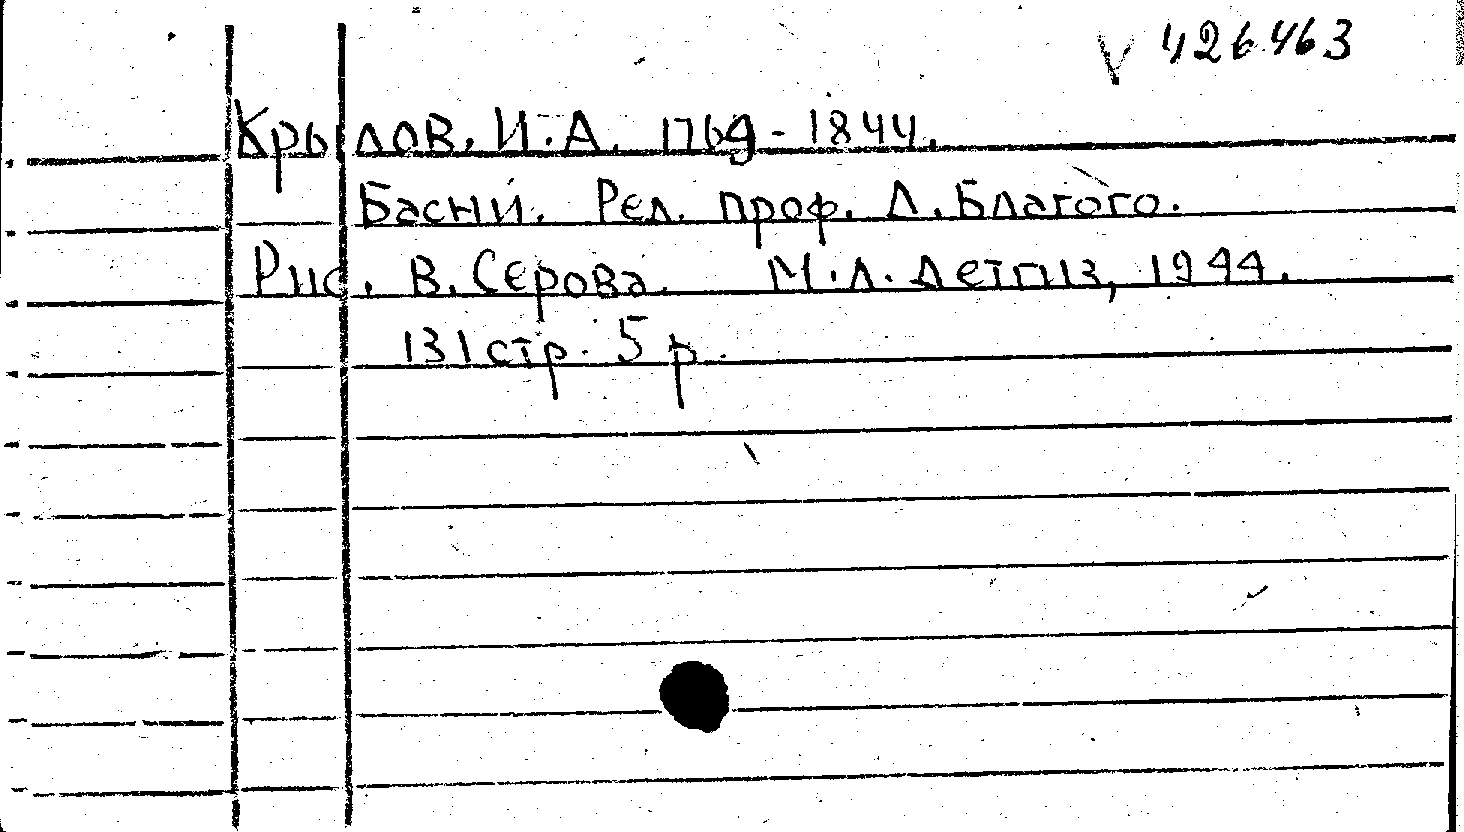 V 426463
Крылов, И.А. 1769-1844.
Басни. Ред. проф. Д. Благого.
Рис. В. Серова. М.Л. Детгиз, 1944.
131 стр. 5 р.